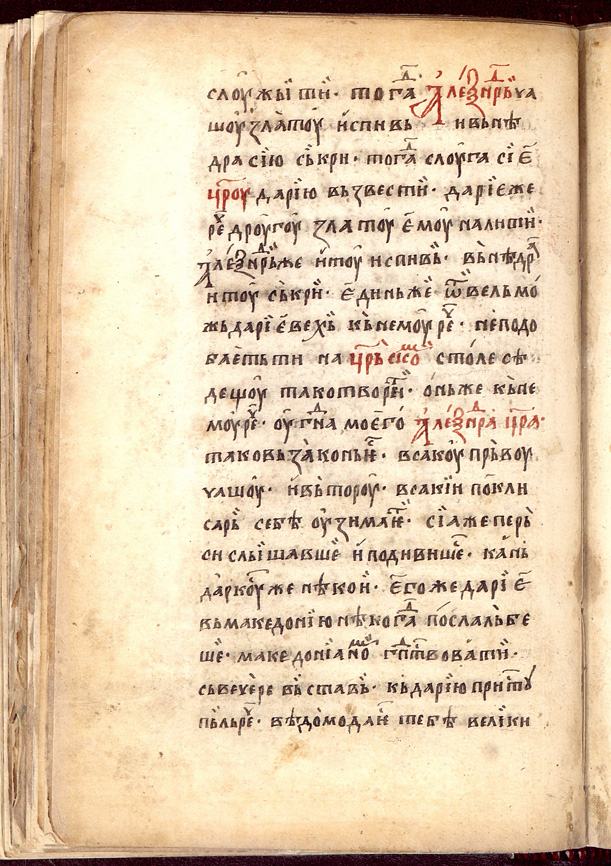 слоужыти· тога͒ Алеѯнⷣръ ча
шоу златоу испивь и вь нѣ
дра сїю съкри· тога͒ слоуга сї е҃
цр҃оу дарїю възвести· дарїе же
ре͒ дроугоу златоу е҃моу налити·
Алеѯнⷣрь же и тоу испивь· вь нѣдр
и тоу съкри· е҃динь же ѿ вельмо
жь дарїевехь кь немоу ре͒· неподо
баеть ти на цр҃ьс сⷨо столе сѣ
дещоу тако творити· онь же кь не
моу ре͒· оу гн҃а моего Алеѯнⷣра цр҃а·
таковь закопь е҃· всакоу прьвоу
чашоу· и вьтороу· всакїи поклі
сарь себѣ оузимае҃· сїа же перь
си слышавше и подивише се· кань
даркоуже нѣкои· е҃гоже дарїе
вь македонїю нѣкога͒ послаль бе
ше· македонїано гп҃ⷣтвовати·
сь вечере вьставь· кь дарїю присту
пьль ре͒· вѣдомо даи тебѣ велїки